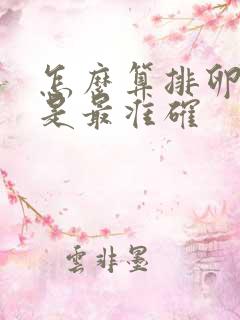 怎麽算排卵
是最准確
雲非墨